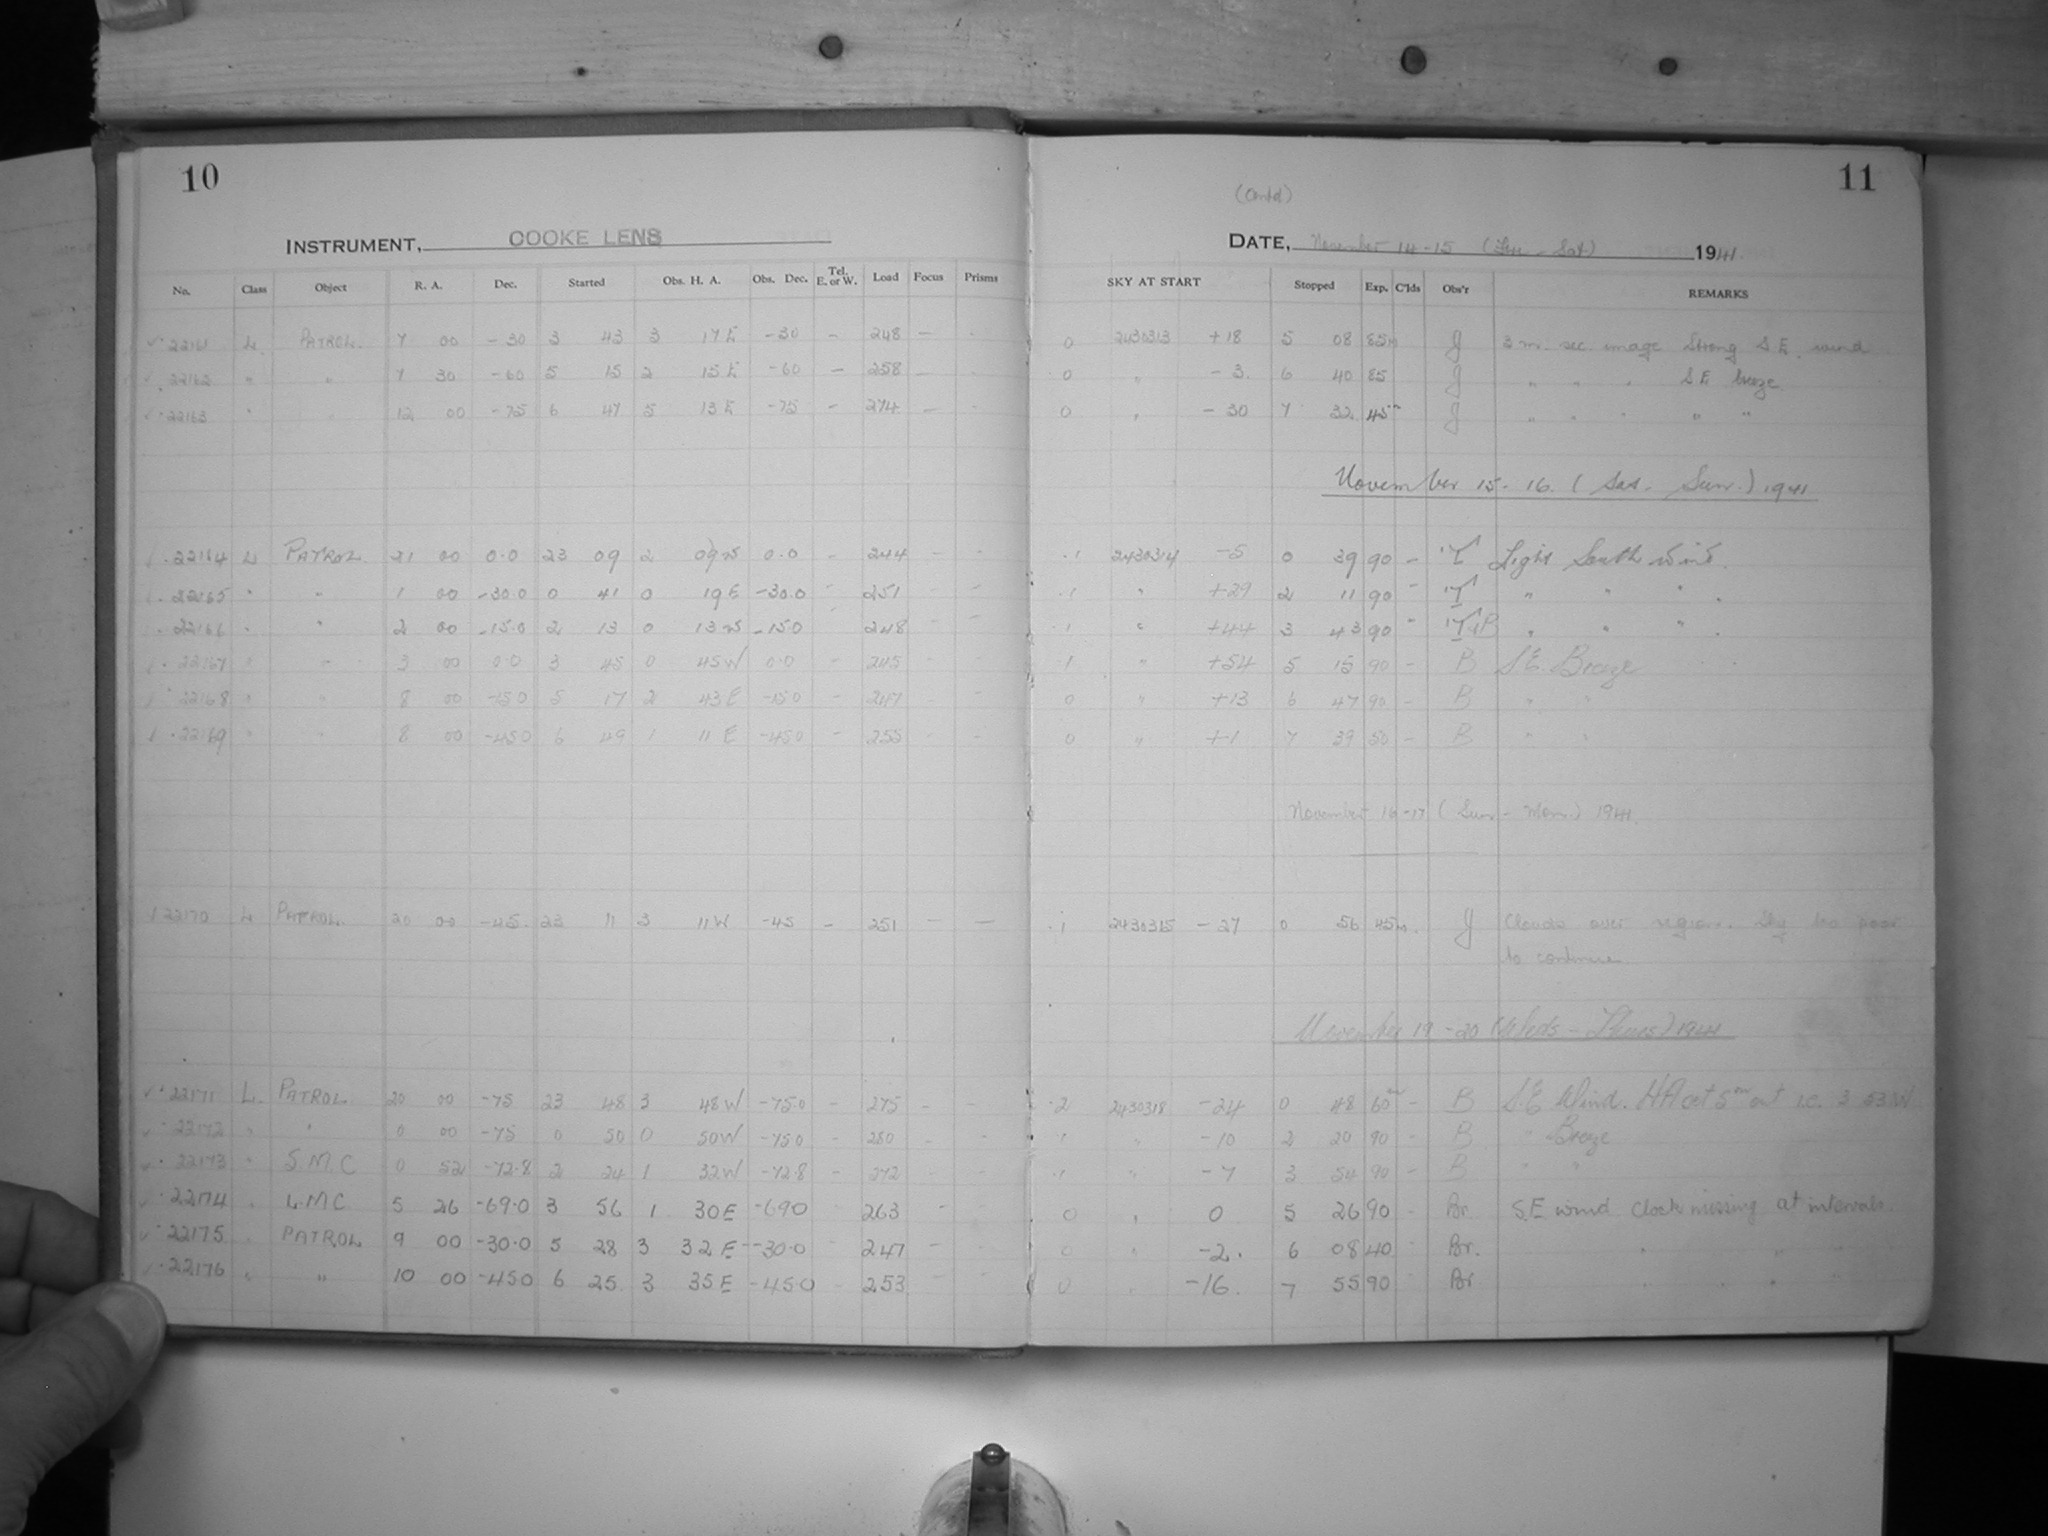 10
INSTRUMENT, COOKE LENS
No. Class Object R. A. Dec. Started Obs. H. A. Obs. Dec. Tel. E. or W. Load Focus Prisms
22161 L PATROL 7 00 -30 3 43 3 17 E -30 - 248 -
22162 " " 7 30 -60 5 15 2 15 E -60 - 258 -
22163 " " 12 00 -75 6 47 5 13 E -75 - 274 -
22164 L PATROL 21 00 0.0 23 09 2 09 W 0.0 - 244 - -
22165 " " 1 00 -30.0 0 41 0 19 E -30.0 - 251 - -
22166 " " 2 00 -15.0 2 13 0 13 W -15.0 248 - -
22167 " " 3 00 0.0 3 45 0 45 W 0.0 - 245 - -
22168 " " 8 00 -15.0 5 17 2 43 E -15.0 - 247 - -
22169 " " 8 00 -45.0 6 49 1 11 E -45.0 - 255 - -
22170 L PATROL 20 00 -45. 23 11 3 11 W -45 - 251 - -
22171 L. PATROL 20 00 -75 23 48 3 48 W -75.0 - 275 - -
22172 " " 0 00 -75 0 50 0 50 W -75.0 - 280 - -
22173 " S.M.C 0 52 -72.8 2 24 1 32 W -72.8 - 272 - -
22174 " L.M.C. 5 26 -69.0 3 56 1 30 E -69.0 263 - -
22175 " PATROL 9 00 -30.0 5 28 3 32 E -30.0 247 - -
22176 " " 10 00 -45.0 6 25 3 35 E -45.0 - 253
11
(Contd)
DATE, November 14-15 (Fri - Sat) 1941
SKY AT START Stopped Exp. C'lds Obs'r REMARKS
0 2430313 +18 5 08 85m J 3 m. sec. image Strong S.E. wind
0 " -3 6 40 85 J " " " S.E. breeze
0 " -30 7 32 45m J " " " " "
November 15-16. (Sat - Sun.) 1941
.1 2430314 -5 0 39 90 - T Light South Wind.
.1 " +29 2 11 90 - T " " " .
.1 " +44 3 43 90 " T&B " " " .
.1 " +54 5 15 90 - B S.E. Breeze
0 " +13 6 47 90 - B " "
0 " +1 7 39 50 - B " "
November 16-17 (Sun - Mon.) 1941.
.1 2430315 -27 0 56 45m. J Clouds over region. Sky too poor
to continue
November 19-20 (Weds - Thurs) 1941
.2 2430318 -24 0 48 60m - B S.E. Wind. HA set 5m out i.e. 3 53 W
.1 " -10 2 20 90 - B " Breeze
.1 " -7 3 54 90 - B " "
0 " 0 5 26 90 - Br. S.E wind clock missing at intervals.
0 " -2. 6 08 40 - Br. " " "
0 " -16. 7 55 90 - Br " " "